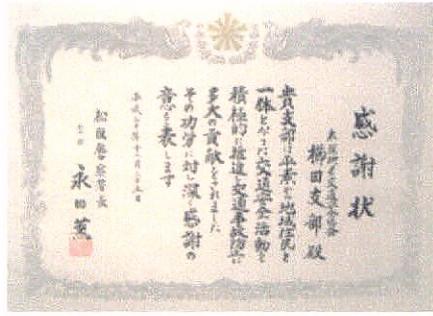 感謝状
松阪地区交通安全協会
櫛田支部殿
貴支部は平素から地域住民と
一体となった交通安全活動を
積極的に推進し交通事故防止に
多大の貢献をされました
その功労に対し深く感謝の
意を表します
平成二十年十二月二十五日
松阪警察署長
永田